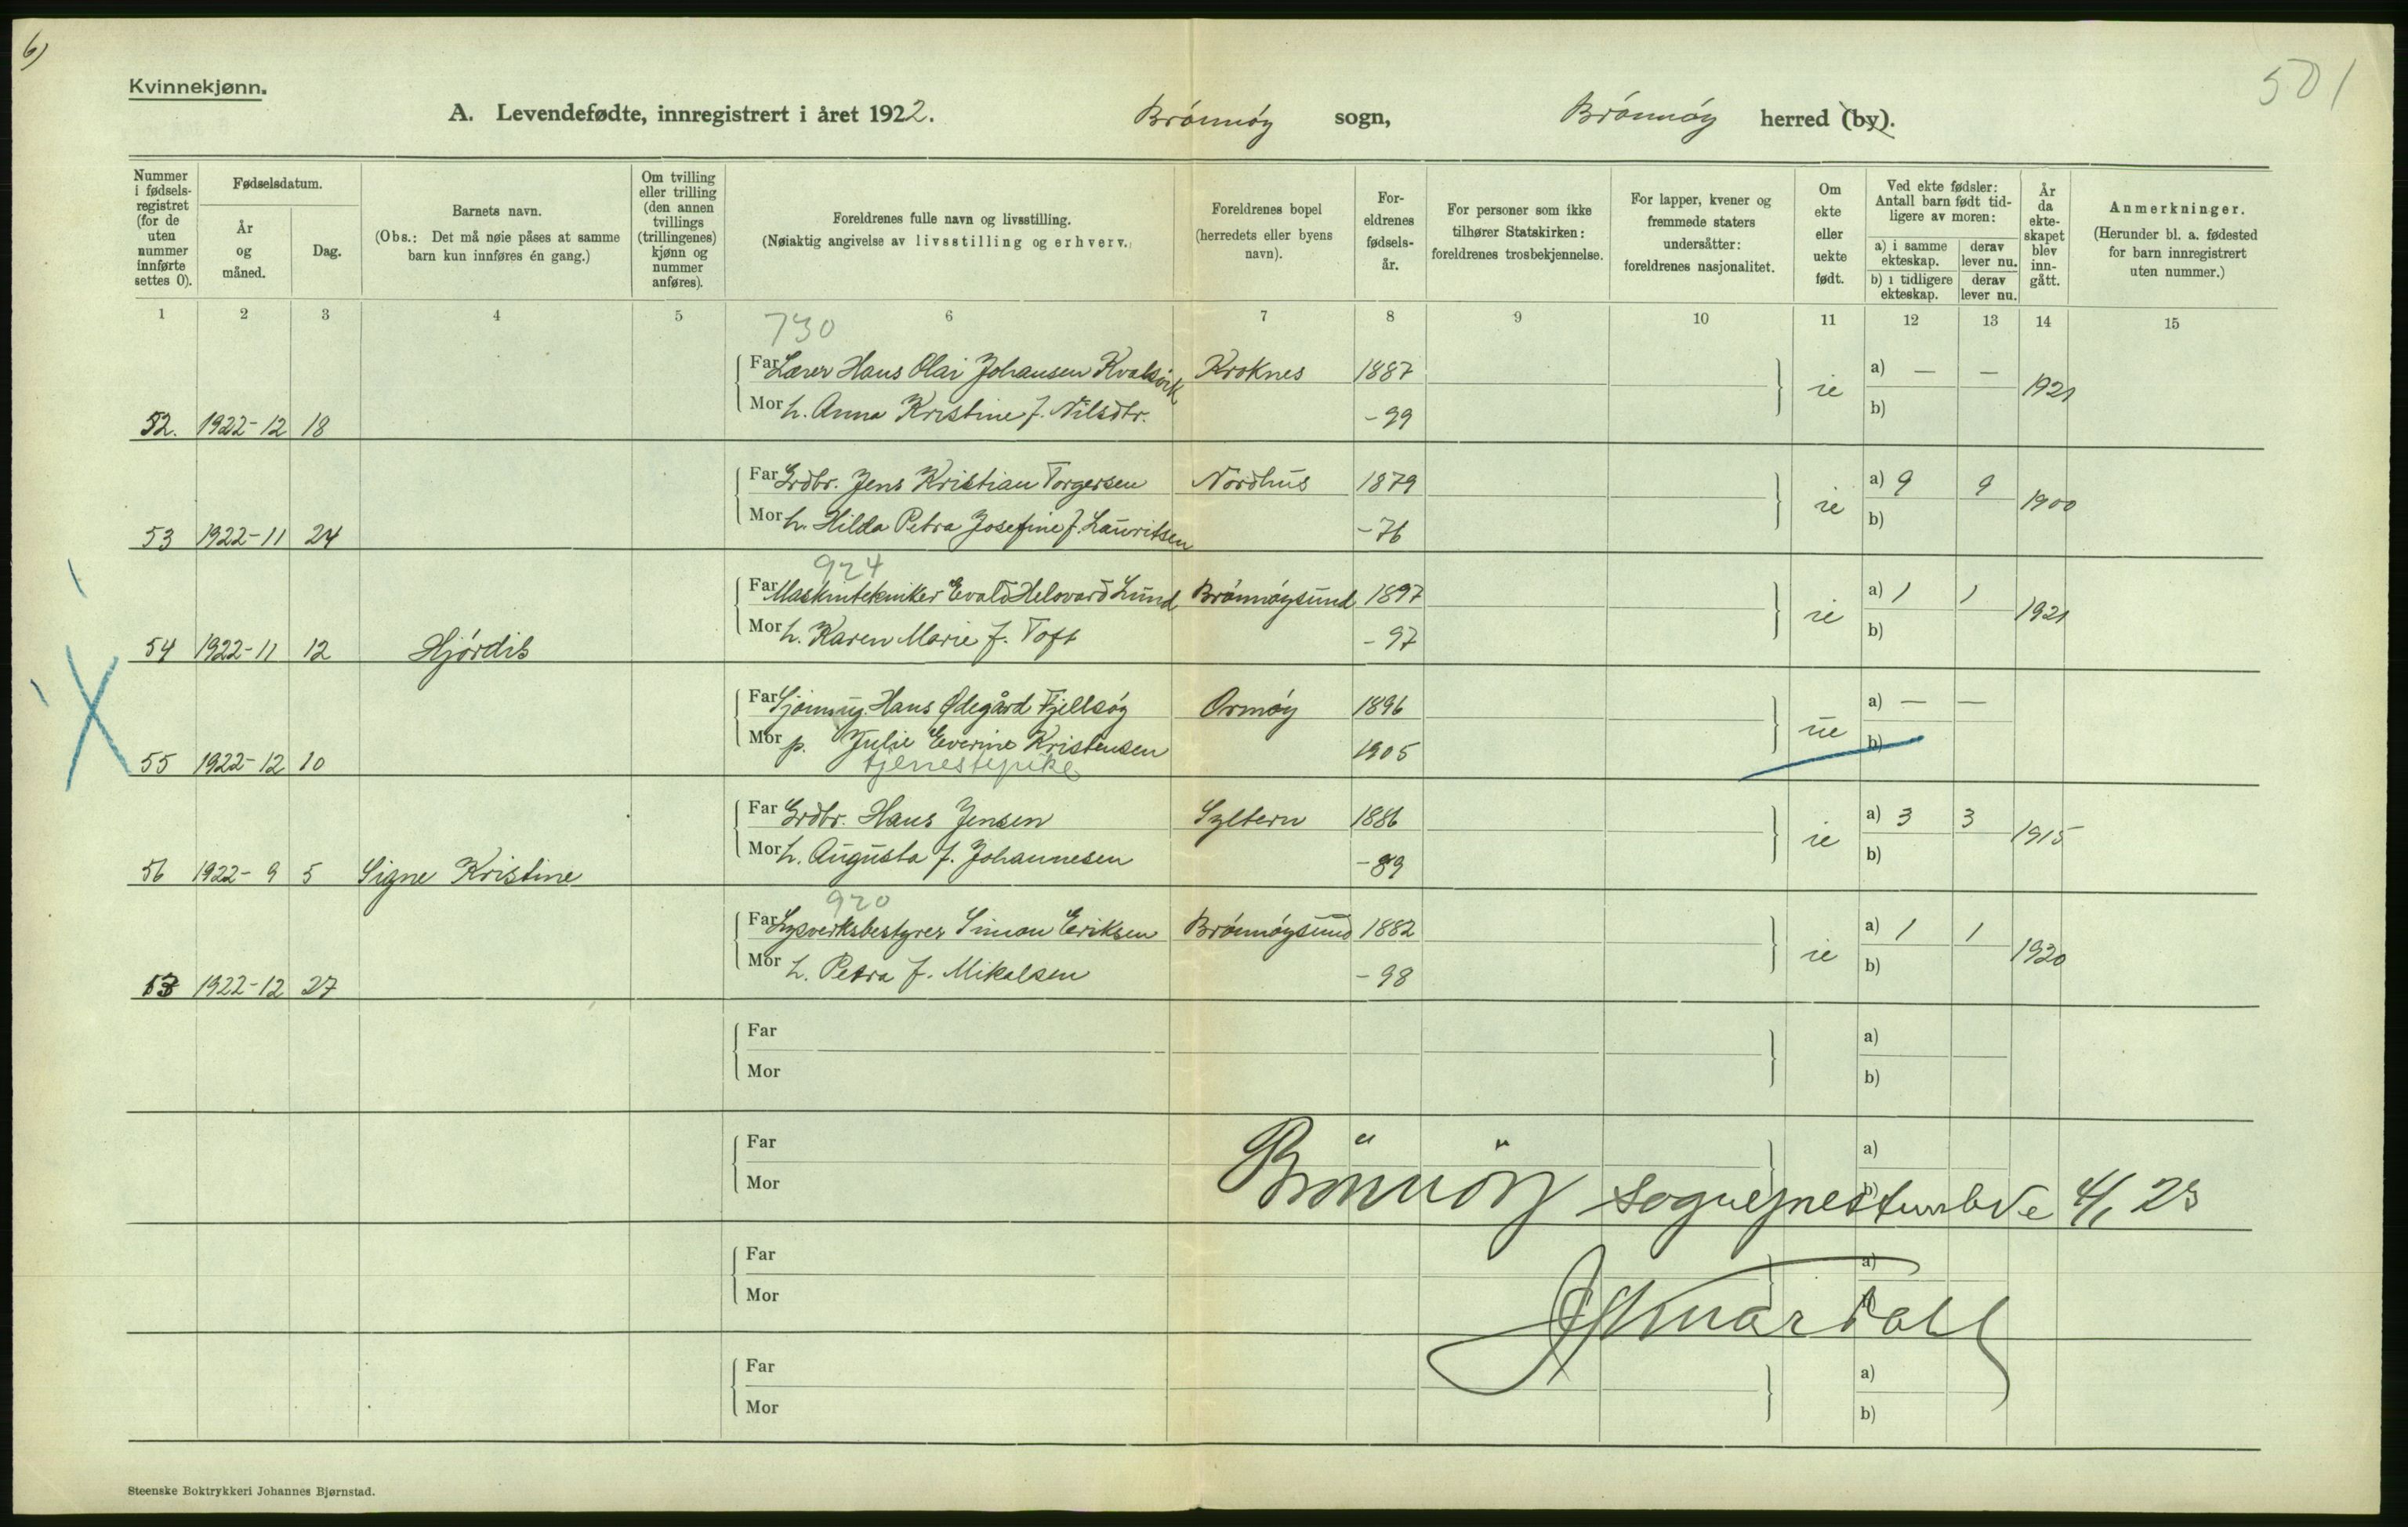 6)
Kvinnekjønn.
501
A. Levendefødte, innregistrert i året 1922. Brönnöy sogn, Brönnöy herred (by).
Nummer i fødsels-registret (for de uten nummer innførte settes 0).
Fødselsdatum.
År og måned.
Dag.
Barnets navn.
(Obs.: Det må nøie påses at samme barn kun innføres én gang.)
Om tvilling eller trilling (den annen tvillings (trillingenes) kjønn og nummer anføres).
Foreldrenes fulle navn og livsstilling.
(Nøiaktig angivelse av livsstilling og erhverv.)
Foreldrenes bopel (herredets eller byens navn).
For-eldrenes fødsels-år.
For personer som ikke tilhører Statskirken: foreldrenes trosbekjennelse.
For lapper, kvener og fremmede staters undersåtter: foreldrenes nasjonalitet.
Om ekte eller uekte født.
Ved ekte fødsler: Antall barn født tid-ligere av moren:
a) i samme ekteskap.
derav lever nu.
b) i tidligere ekteskap.
derav lever nu.
År da ekte-skapet blev inn-gått.
Anmerkninger.
(Herunder bl. a. fødested for barn innregistrert uten nummer.)
1 2 3 4 5 6 7 8 9 10 11 12 13 14 15
730
Far Lærer Hans Olai Johansen Kvalsvik Kroknes 1887 ie a) — — 1921
Mor h. Anna Kristine f. Nilsdtr. -99 b)
52. 1922-12 18
Far Grdbr. Jens Kristian Torgersen Nordhus 1879 ie a) 9 9 1900
Mor h. Hilda Petra Josefine f. Lauritsen -76 b)
53 1922-11 24
924
Far Maskintekniker Evald Helovard Lund Brönnöysund 1897 ie a) 1 1 1921
Mor h. Karen Marie f. Toft -97 b)
54 1922-11 12 Hjördis
Far Hans Ødegård Fjellsöy Ormöy 1896 ue a) — —
Mor p. Julie Everine Kristensen 1905 b)
tjenestepike
55 1922-12 10
Far Grdbr. Hans Jensen Syltern 1886 ie a) 3 3 1915
Mor h. Augusta f. Johannesen -89 b)
56 1922-9 5 Signe Kristine
920
Far Lysverksbestyrer Simon Eriksen Brönnöysund 1882 ie a) 1 1 1920
Mor h. Petra f. Mikalsen -98 b)
1922-12 27
Far a)
Mor b)
Far a)
Mor b)
Brönnöy sogneprestembede 4/1 23
Far a)
Mor b)
Far a)
Mor b)
Steenske Boktrykkeri Johannes Bjørnstad.